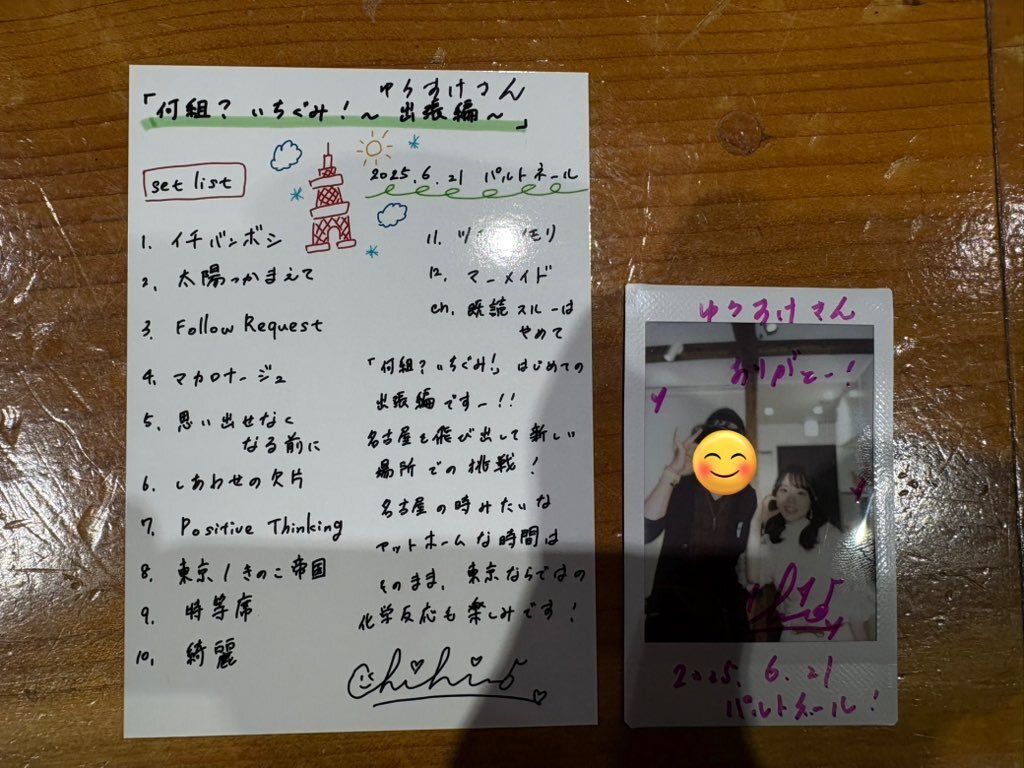 ゆうすけさん
「何組？いちぐみ！～ 出張編～」
set list
2025.6.21 パルトネール
1. イチバンボシ
2. 太陽つかまえて
3. Follow Request
4. マカロナージュ
5. 思い出せなく
なる前に
6. しあわせの欠片
7. Positive Thinking
8. 東京/きのこ帝国
9. 特等席
10. 綺麗
11. ツ モリ
12. マーメイド
en. 既読スルーは
やめて
「何組？いちぐみ！」はじめての
出張編ですー！！
名古屋を飛び出して新しい
場所での挑戦！
名古屋の時みたいな
アットホームな時間は
そのまま、東京ならではの
化学反応も楽しみです！
Chihiro
ゆうすけさん
ありがとー！
2025.6.21
パルトネール！